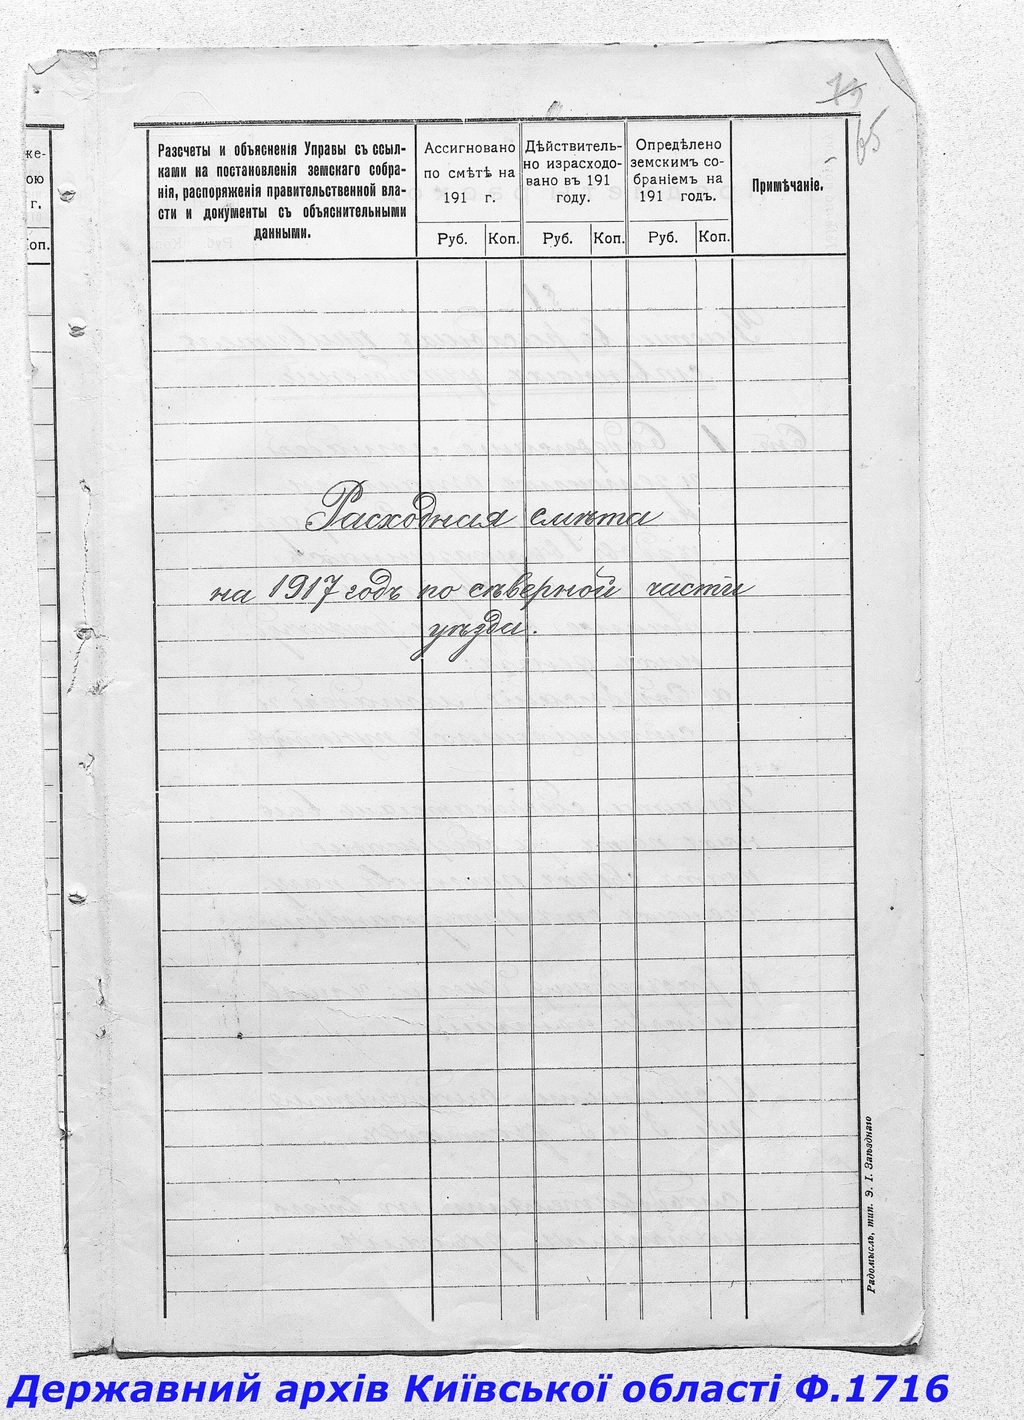 65
же-
ою
г.
Коп.
Разсчеты и объясненія Управы съ ссыл-
ками на постановленія земскаго собра-
нія, распоряженія правительственной вла-
сти и документы съ объяснительными
данными.
Ассигновано
по смѣтѣ на
191 г.
Руб. Коп.
Дѣйствитель-
но израсходо-
вано въ 191
году.
Руб. Коп.
Опредѣлено
земскимъ со-
браніемъ на
191 годъ.
Руб. Коп.
Примѣчаніе.
Расходная смѣта
на 1917 годъ по сѣверной части
уѣзда.
Радомысль, тип. Э. І. Заѣзднаго
Державний архів Київської області Ф.1716